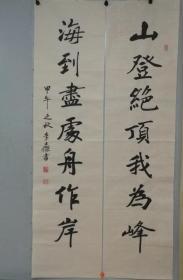 山登絕頂我為峰
海到盡處舟作岸
甲午之秋李
書